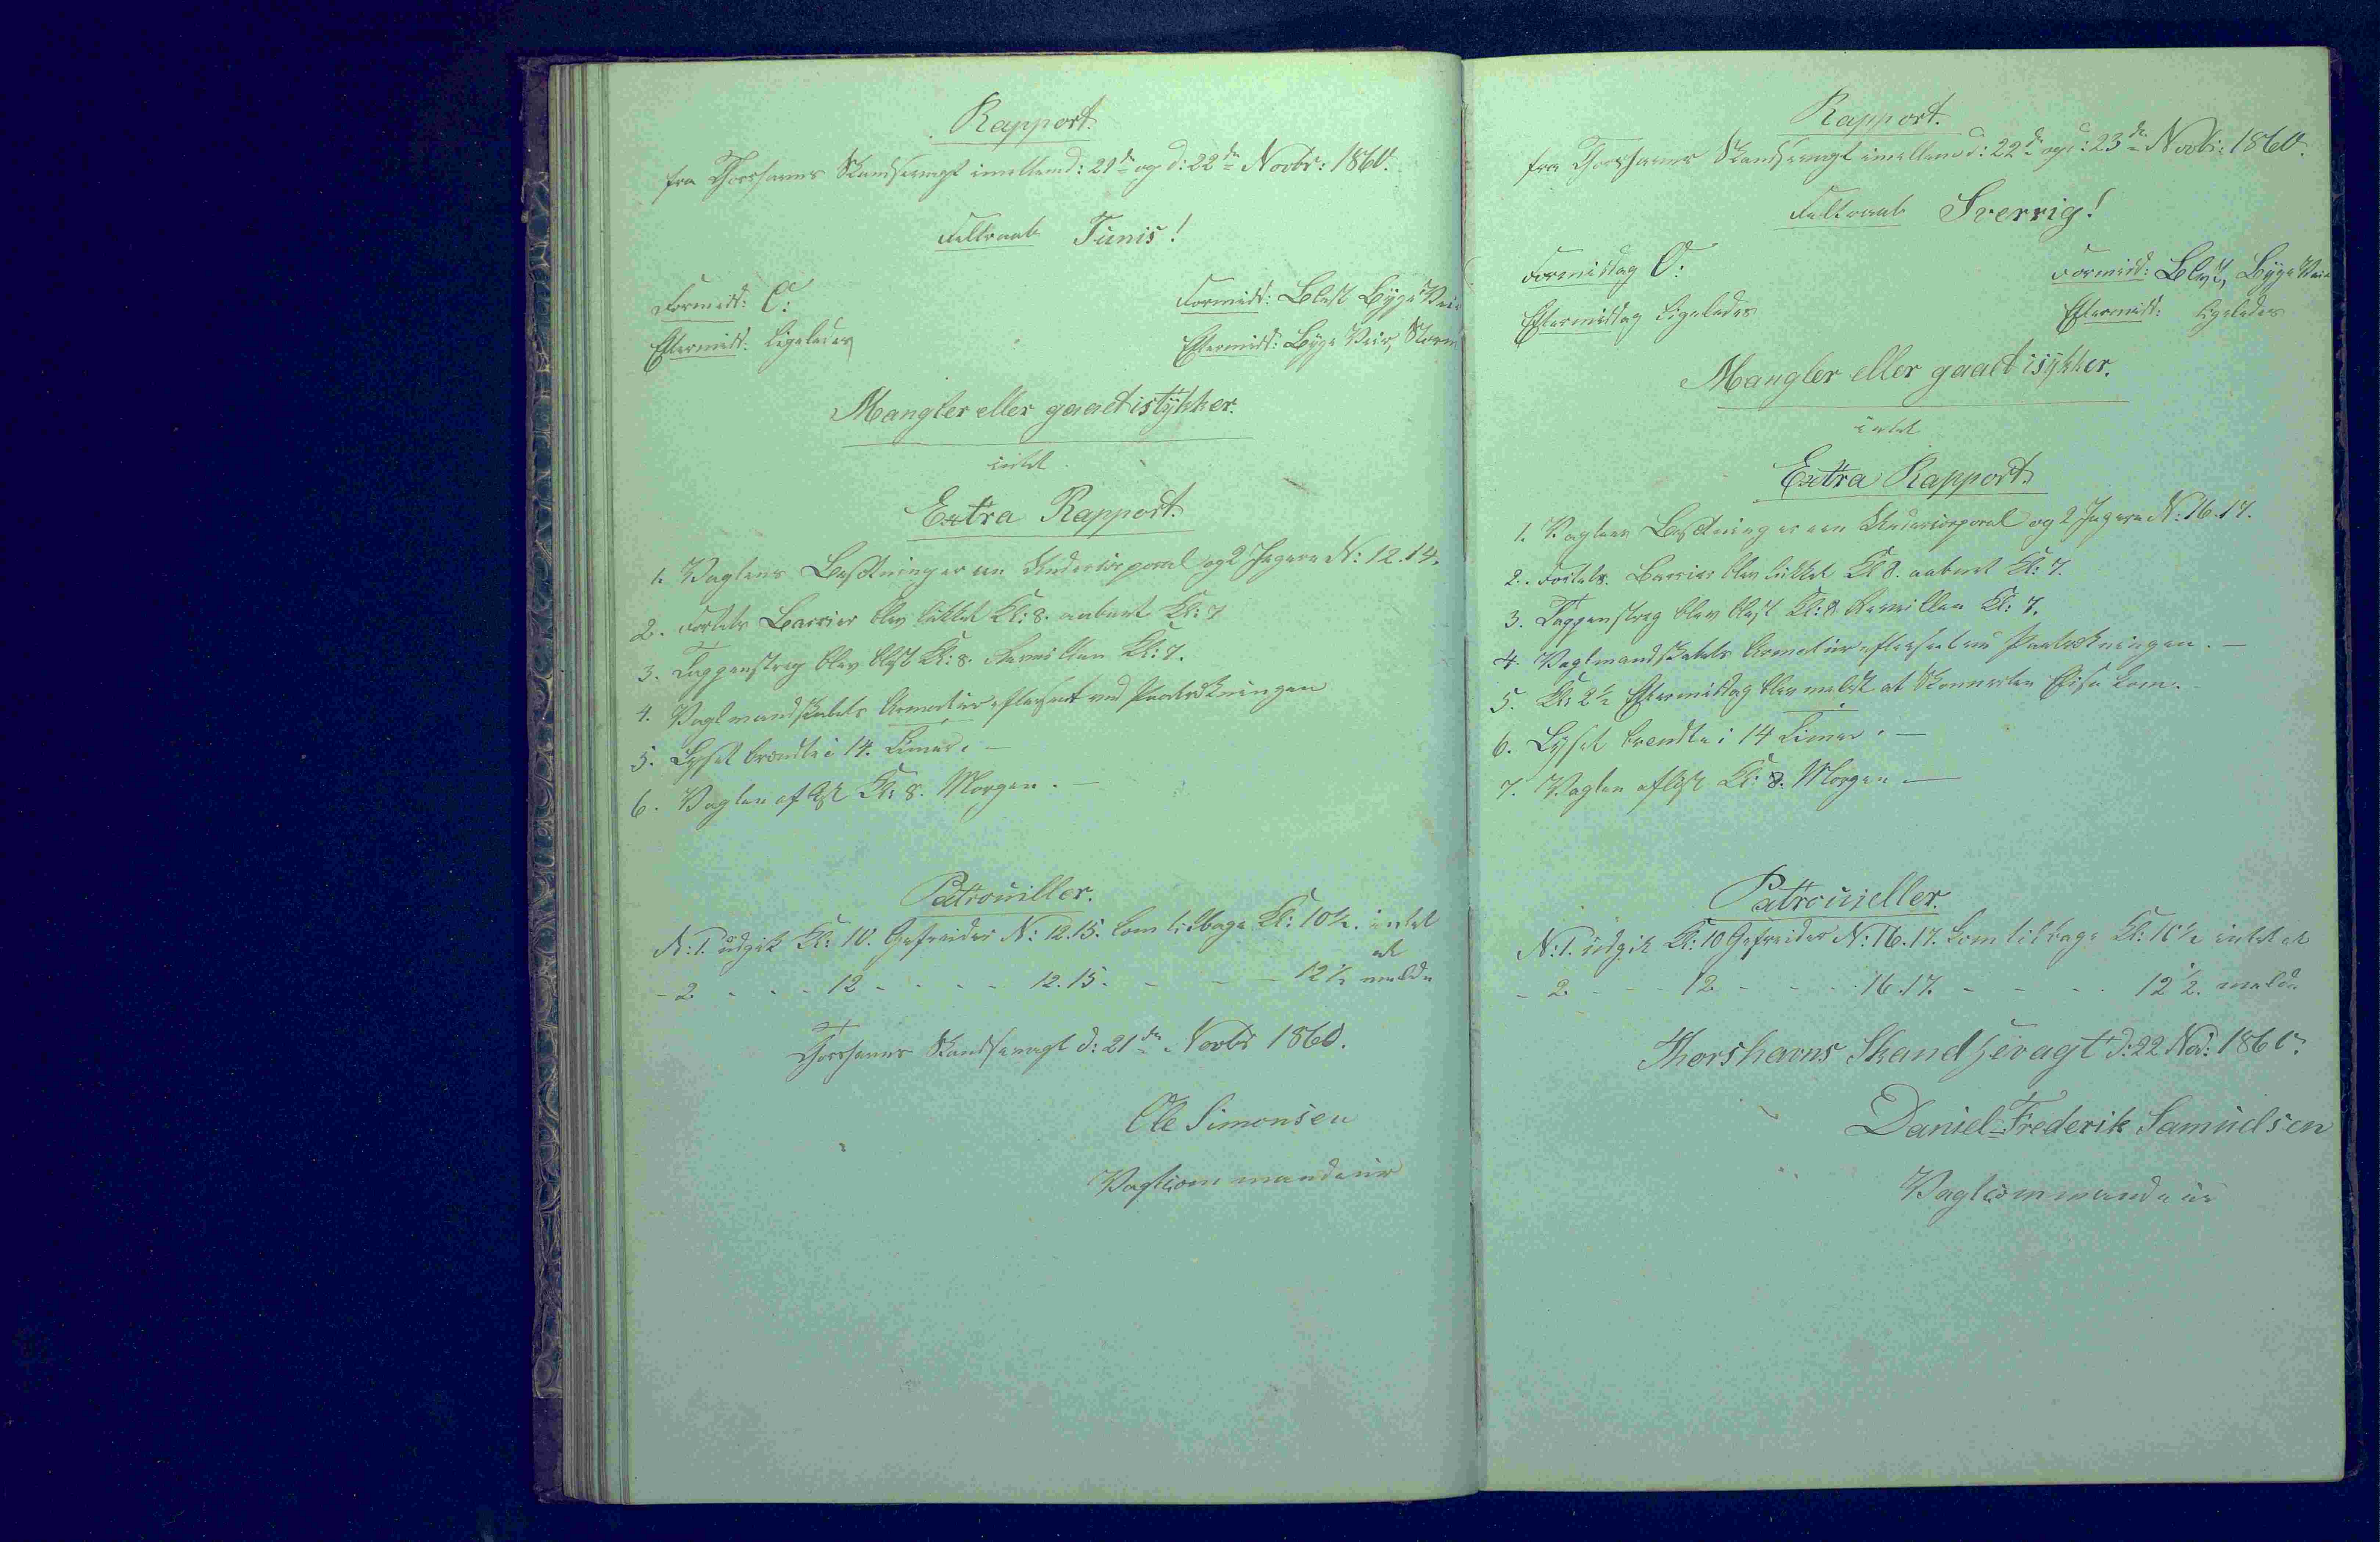 Rapport.
fra Thorshavns Skandsevagt imellem d: 21de og d: 22de Novbr: 1860.
Feltraab Tunis!
Formidd: O:
Formidd: Blæst Byge Veir
Eftermidd: Ligeledes
Eftermidd: Byge Veir, Storm
Mangler eller gaaet istykker.
intet
Extra Rapport.
1. Vagtens Besætning er een Undercorporal og 2 Jægere N: 12.14.
2. Fortets Barrier blev lukket Kl: 8. aabnet Kl: 7
3. Tappenstreg blev blæst Kl: 8. Reveillen Kl: 7.
4. Vagtmandskabets Armatur efterseet ved Paatrækningen
5. Lyset brændte i 14. Timer. —
6. Vagten afløst Kl: 8. Morgen. —
Patrouiller.
N: 1. udgik Kl: 10. Gefreider N: 12.15. kom tilbage Kl: 10½. intet
at
- 2 - - - 12 - - - - 12.15. - - - 12½ melde
Thorshavns Skandsevagt d: 21de Novbr 1860.
Ole Simonsen
Vagtcommandeur
Rapport.
fra Thorshavns Skandsevagt imellem d: 22de og d: 23de Novbr: 1860.
Feltraab Sverrig!
Formiddag O:
Formidd: Blæst, Byge Veir
Eftermiddag Ligeledes
Eftermidd: Ligeledes
Mangler eller gaaet isykker.
intet
Extra Rapport.
1. Vagtens Besætning er een Undercorporal og 2 Jægere N: 16.17.
2. Fortets Barrier blev lukket Kl 8. aabnet Kl: 7.
3. Tappenstreg blev blæst Kl: 8 Reveillen Kl: 7.
4. Vagtmandskabets Armatur efterseet ved Paatrækningen. —
5. Kl: 2½ Eftermiddag blev meldt at Skonnerten Efisa kom.
6. Lyset brændte i 14 Timer. —
7. Vagten afløst Kl: 8. Morgen —
Patrouiller.
N: 1. udgik Kl: 10 Gefreider N: 16.17. kom tilbage Kl: 10½ intet at
- 2 - - - 12 - - - - 16.17. - - - - 12½. melde
Thorshavns Skandsevagt d: 22 Nov: 1860.
Daniel-Frederik Samuelsen
Vagtcommandeur